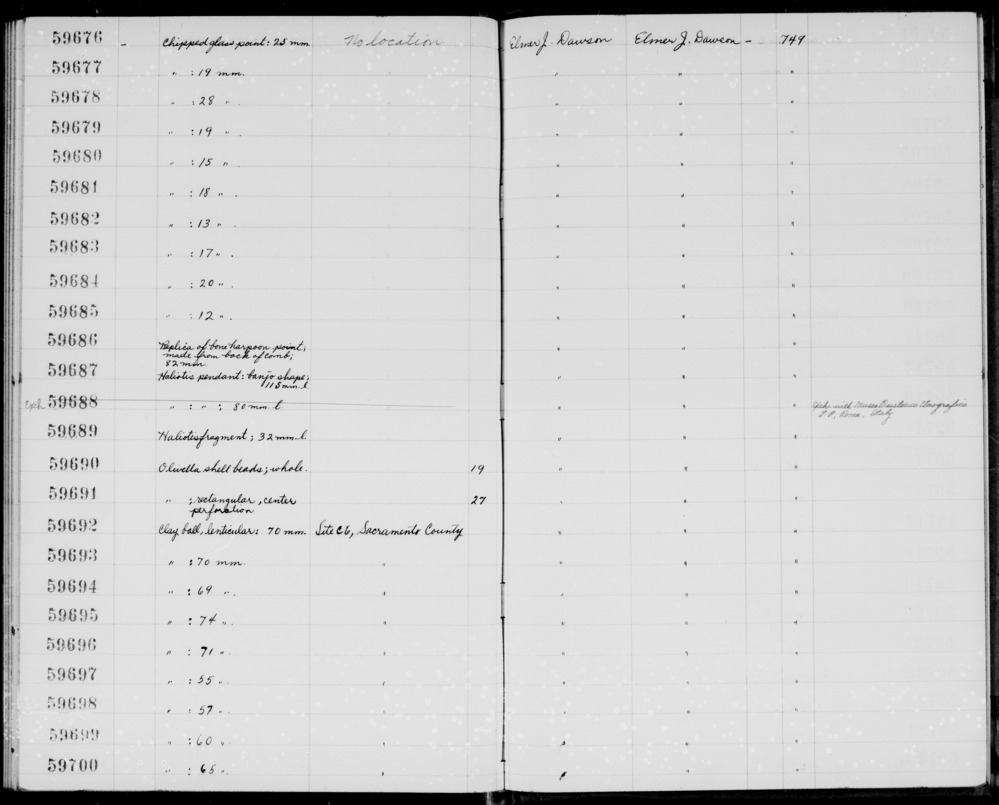 59676 - Chipped glass point: 25 mm. No location Elmer J. Dawson Elmer J. Dawson - 749
59677 " : 19 mm. " " "
59678 " : 28 " . " " "
59679 " : 19 " . " " "
59680 " : 15 " . " " "
59681 " : 18 " . " " "
59682 " : 13 " . " " "
59683 " : 17 " . " " "
59684 " : 20 " . " " "
59685 " : 12 " . " " "
59686 Replica of bone harpoon point, " " "
made from back of comb;
82 mm
59687 Haliotis pendant: banjo shape; " " "
115 mm. l.
Exch 59688 " : " ; 80 mm. l. " " " Exch. with Museo Etnografico
L. P., Roma, Italy
59689 Haliotis fragment; 32 mm. l. " " "
59690 Olivella shell beads; whole. 19 " " "
59691 " ; rectangular, center 27 " " "
perforation
59692 Clay ball, lenticular: 70 mm. Site C6, Sacramento County " " "
59693 " : 70 mm. " " " "
59694 " : 69 " . " " " "
59695 " : 74 " . " " " "
59696 " : 71 " . " " " "
59697 " : 55 " . " " " "
59698 " : 57 " . " " " "
59699 " : 60 " " " " "
59700 " : 65 " . " " " "